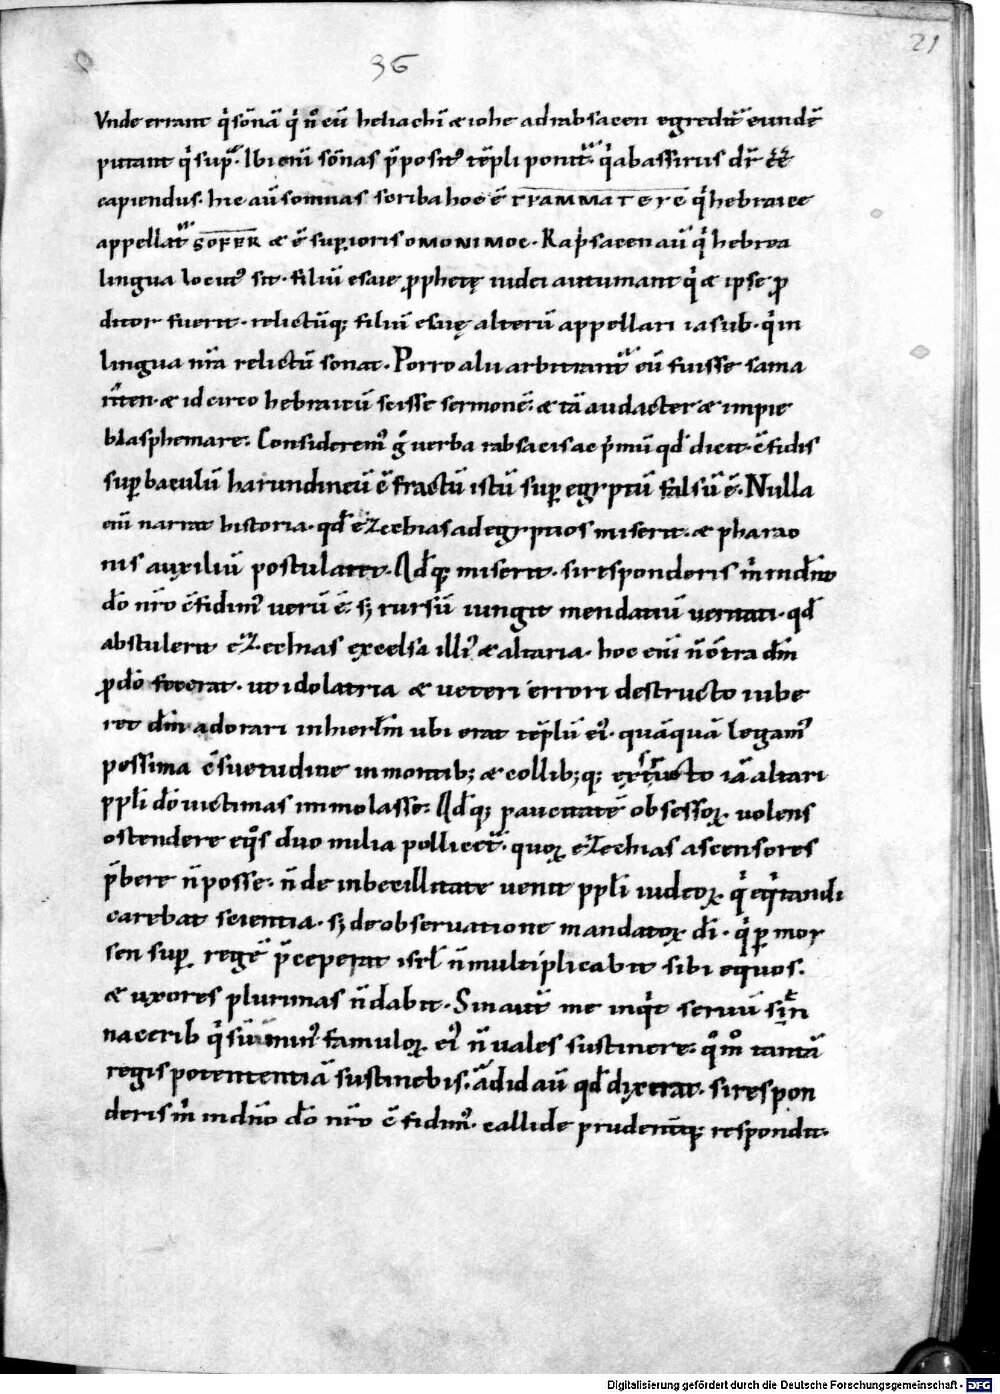 21
36
Vnde errant q̇ sōnā q̇ n̊ cū heliachī & iohe ad rabsacen egredit᷑ eundē
putant q̇ sup᷑. Ibi eni᷑ sōnas p̄posit᷒ tēpli ponit᷑. q̇ abassirus dr̄ ēē
capiendus. hic aū somnas scriba hoc ē ΓΡΑΜΜΑΤΕΥϹ q̇ hebraice
appellat᷑ SOFER & ē superioris OMONIMOC. Rapsacen aū q̇ hebrea
lingua locut᷒ sit. filiū esaie prophetę iudei autumant q̇ & ipse pro
ditor fuerit. relictūq; filiū esaię alterū appellari iasub. q̇ in
lingua nr̄a relictū sonat. Porro alii arbitrant᷑ eū fuisse sama
riten. & idcirco hebraicū scisse sermonē. & tā audacter & impie
blasphemare. Considerem᷒ g̊ uerba rabsacis ac p̄mū qd̄ dicit. c̄fidis
sup baculū harundineū c̄fractū istū sup egyptū falsū ē. Nulla
eni᷑ narrat historia. qd̄ ezechias ad egyptios miserit. & pharao
nis auxiliū postularet. Qd̄q; miserit. si responderis m̄ in dn̄o
dō nr̄o c̄fidim᷒ uerū ē. s; rursū iungit mendatiū ueritati. qd̄
abstulerit ezechias excelsa illi᷒ & altaria. hoc eni᷑ n̄ c̄tra dm̄
p dō fecerat. ut idolatria & ueteri errori destructo iube
ret dm̄ adorari in hierl̄m ubi erat tēplū ei᷒. quāquā legam᷒
pessima c̄suetudine in montib; & collib;q; extructo iā altari
ppl̄i dō uictimas immolasse. Qd̄q; paucitatē obsessoꝝ. uolens
ostendere eq̊s duo milia pollicet᷑. quoꝝ ezechias ascensores
p̄bere n̄ posse. n̄ de inbecillitate uenit ppl̄i iudeoꝝ. q̇ eq̇tandi
carebat scientia. s; de obseruatione mandatoꝝ dī. q̇ p moy
sen sup regē p̄ceperat isrl̄ n̄ multiplicabit sibi equos.
& uxores plurimas n̄ dabit. Sin aut᷑ me inq̇t seruū sen
nacerib q̇ sū min᷒ famuloꝝ ei᷒ n̄ uales sustinere. q̊m̊ tantā
regis potententiā sustinebis. Ad id aū qd̄ dixerat. si respon
deris m̄ in dn̄o dō nr̄o c̄fidim᷒. callide prudenterq; respondit.
Digitalisierung gefördert durch die Deutsche Forschungsgemeinschaft - DFG